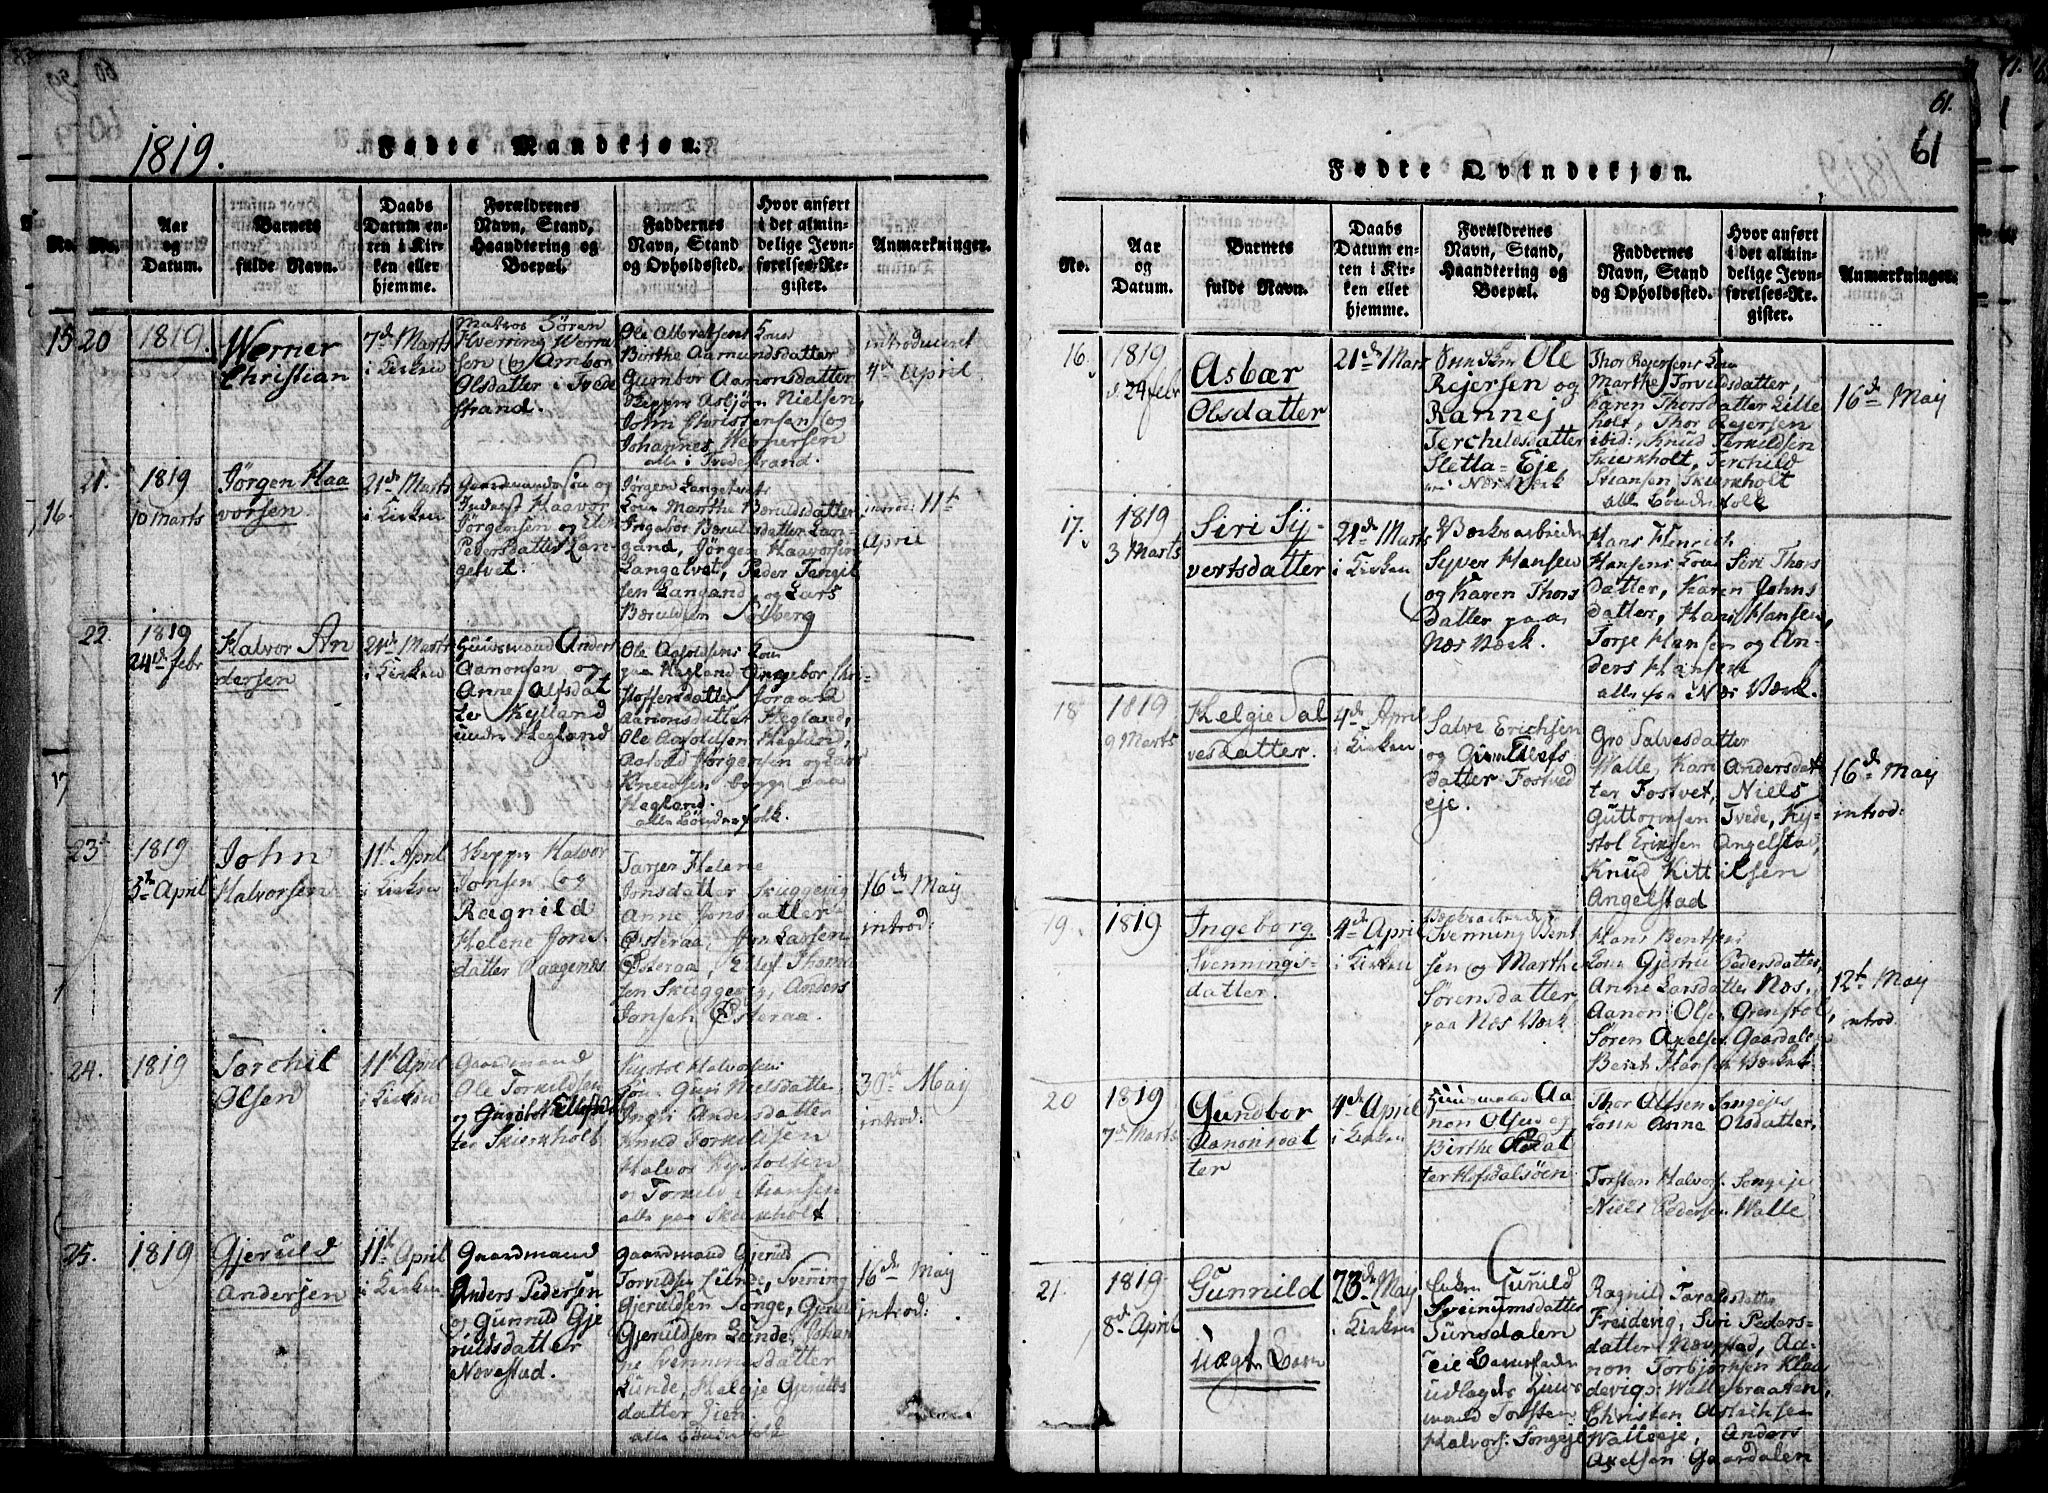 1819.
Fødte Mandkjøn.
No.
No.
Aar
og
Datum.
Barnets
fulde Navn.
Daabs
Datum en-
ten i Kir-
ken eller
hjemme.
Forældrenes
Navn, Stand,
Haandtering og
Boepæl.
Faddernes
Navn, Stand
og Opholdssted.
Hvor anført
i det almin-
delige Jevn-
førelses-Re-
gister.
Anmærkninger.
15
20
1819.
Werner
Christian
7de Marts
i Kirken
Matros Sören
Werne
sen og Ambor
Olsdatter i Tvede
strand.
Ole Albretsens Kone
Birthe Aamundsdatter
Gumbor Aanonsdatter
Skipper Asbjøn Nielsen,
John Christensen og
Johannes Wernersen
alle i Tvedestrand.
introduceret
4de April
16.
21.
1819
10 Marts
Jørgen Haa
vorsen.
21de Marts
i Kirken
Haavor
Jörgensen og Ellen
Pedersdatter Lan-
gelvet.
Jørgen Langelvets
Kone Marthe Bærulsdatter
Bærulsdatter Lan
gand, Jørgen Haavorsen
Langelvet, Peder Tengil
sen Langand, og Lars
Bærulsen Solberg
introd: 11te
April
17
22.
1819
24de febr
Halvor An
dersen
21de Marts
i Kirken
Huusmand Anders
Aanonsen og
Anne Alfsdat
ter Kylland
under Hegland
Ole Aasoldsens Kone
paa Hegland Angebor Chri-
stoffersdatter
Aanonsdatter Hegland,
Ole Aasoldsen Heglund,
Aasold Jörgensen og Lars
Knudsen begge paa
Hegland.
alle Bønderfolk.
23
1819
5te April
John
Halvorsen
11te April
i Kirken
Skipper Halvor
Jonsen og
Ragnild
Helene Jons
datter Laagenæs
Helene
Jonsdatter Skuggevig
Anne Jonsdatter
Østeraa, Jon Larsen
Østeraa, Ellef Thomas
sen Skuggevig, Anders
Jonsen Østeraa.
16de May
introd:
24.
1819
Torchil
Olsen
11te April
i Kirken
Gaardmand
Ole Torkildsen
og Ellefsdat
ter Skierkholt
Kystol Halvorsens
Kone Guri Nielsdatter
Ingri Andersdatter
Knud Torkildsen
Halvor Kystolsen
og Torkild
alle paa Skierkholt
30de May
introd:
25.
1819
Gjeruld
Andersen
11te April
i Kirken
Gaardmand
Anders Pedersen
og Gunnild Gje
ruldsdatter
Novestad.
Gaardmand Gjeruld
Torvildsen Lunde, Svenning
Gjeruldsen Songe, Gjeruld
Gjeruldsen Lunde, Johan
ne Svenningsdatter
Lunde, Helgje Gjerulds
datter
alle Bønderfolk
16de May
introd:
61.
61
Fødte Qvindekjøn.
No.
Aar
og
Datum.
Barnets
fulde Navn.
Daabs
Datum en-
ten i Kir-
ken eller
hjemme.
Forældrenes
Navn, Stand,
Haandtering og
Boepæl.
Faddernes
Navn, Stand
og Opholdssted.
Hvor anført
i det almin-
delige Jevn-
førelses-Re-
gister.
Anmærkninger.
16.
1819
d. 24 febr
Asbær
Olsdatter
21de Mars
Ole
Rejersen og
Rannej
Terchildsdatter
Sletta-Eje
Thor Rejersens Kone
Marthe Torvildsdatter,
Karen Thorsdatter Lille
holt, Thor Rejersen
ibid:, Knud Terkildsen
Skierkholt, Terchild
Svensen, Skierkholt
alle Bønderfolk
16de May
17.
1819
3 Marts
Siri Sy-
vertsdatter
21de Marts
i Kirken
Værksarbeider
Syver Hansen
og Karen Thors
datter paa
Næs Værk.
Hans Henrich
Hansens Kone Siri Thors
datter, Karen Johns
datter, Hans Hansen,
Torje Hansen og An-
ders Hansen
alle paa Næs Værk.
18
1819
9 Marts
Helgie Sal
vesdatter.
4de April
i Kirken
Salve Erichsen
og
datter Fosved
eje.
Gro Salvesdatter
Walle, Kari Andersdat
ter Fosvet, Niels
Guttormsen Tvede, Ky-
stol Eriksen Angelstad,
Knud Kittilsen
Angelstad
16de May
introd:
19.
1819
Ingeborg
Svennings-
datter.
4de April
i Kirken
Svenning Bent
sen og Marthe
Sørensdatter
paa Næs Værk
Hans Bentsens
Kone Gjestru Pedersdatter,
Anne Larsdatter Næs,
Aanon Olsen Grenstol,
Søren Axelsen Gaardale
Berit Hansen Værket
12te May
introd.
20
1819
7de Marts
Gundbor
Aanonsdat
ter
4de April
i Kirken
Huusmand Aa
non Olsen og
Birthe
ter Hofsdalsöen
Thor Olsen Songejes
Kone Anne Olsdatter,
Torsten Halvors. Songeje
Niels Pedersen Walle
21.
1819
8de April
Gunnild
Uægte Barn
23de May
i Kirken
Gunild
Sveinumsdatter
Sunsdalen
eie Barnefader
udlagdes Huus
mand Torsten
Halvors: Songeje
Ragnild Taraldsdatter
Freidevig, Siri Peders-
datter Nævestad, Aa-
non Torbjørnsen Kla
devigs, Wallebraaten,
Christen Aslachsen
Walleeje, Anders
Axelsen Gaardalen